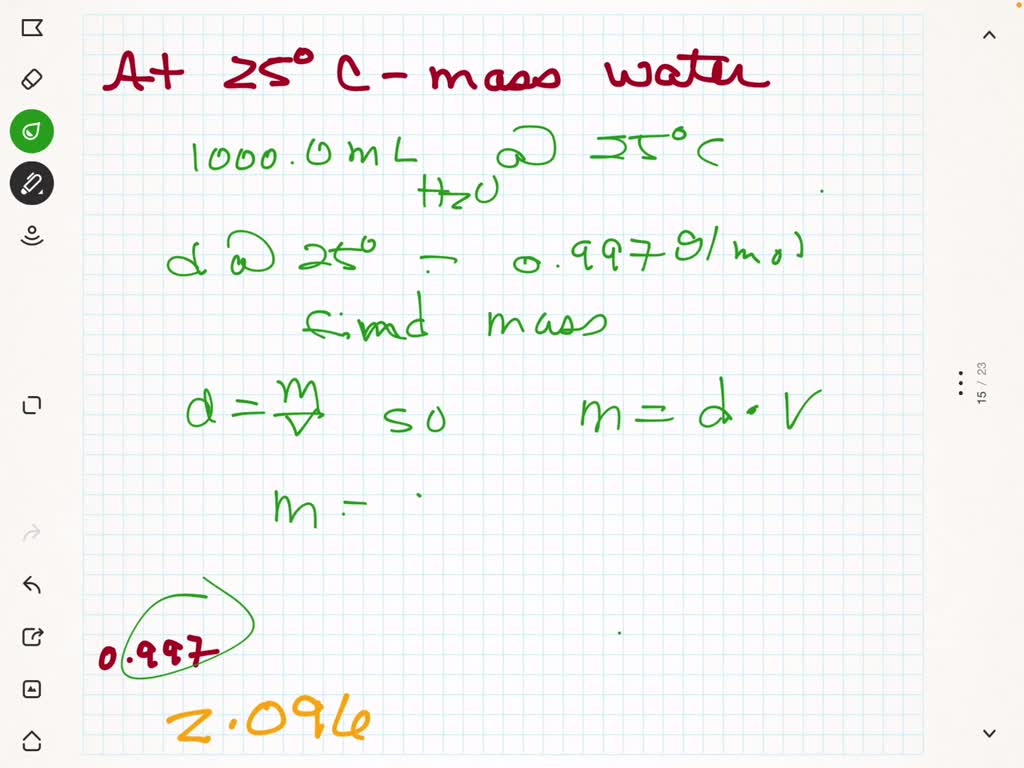 At 25° C - mass water
1000.0 mL @ 25° C
H2O
d @ 25° = 0.997 g/mol
find mass
d = m/V so m = d · V
m =
0.997
2.096
15 / 23